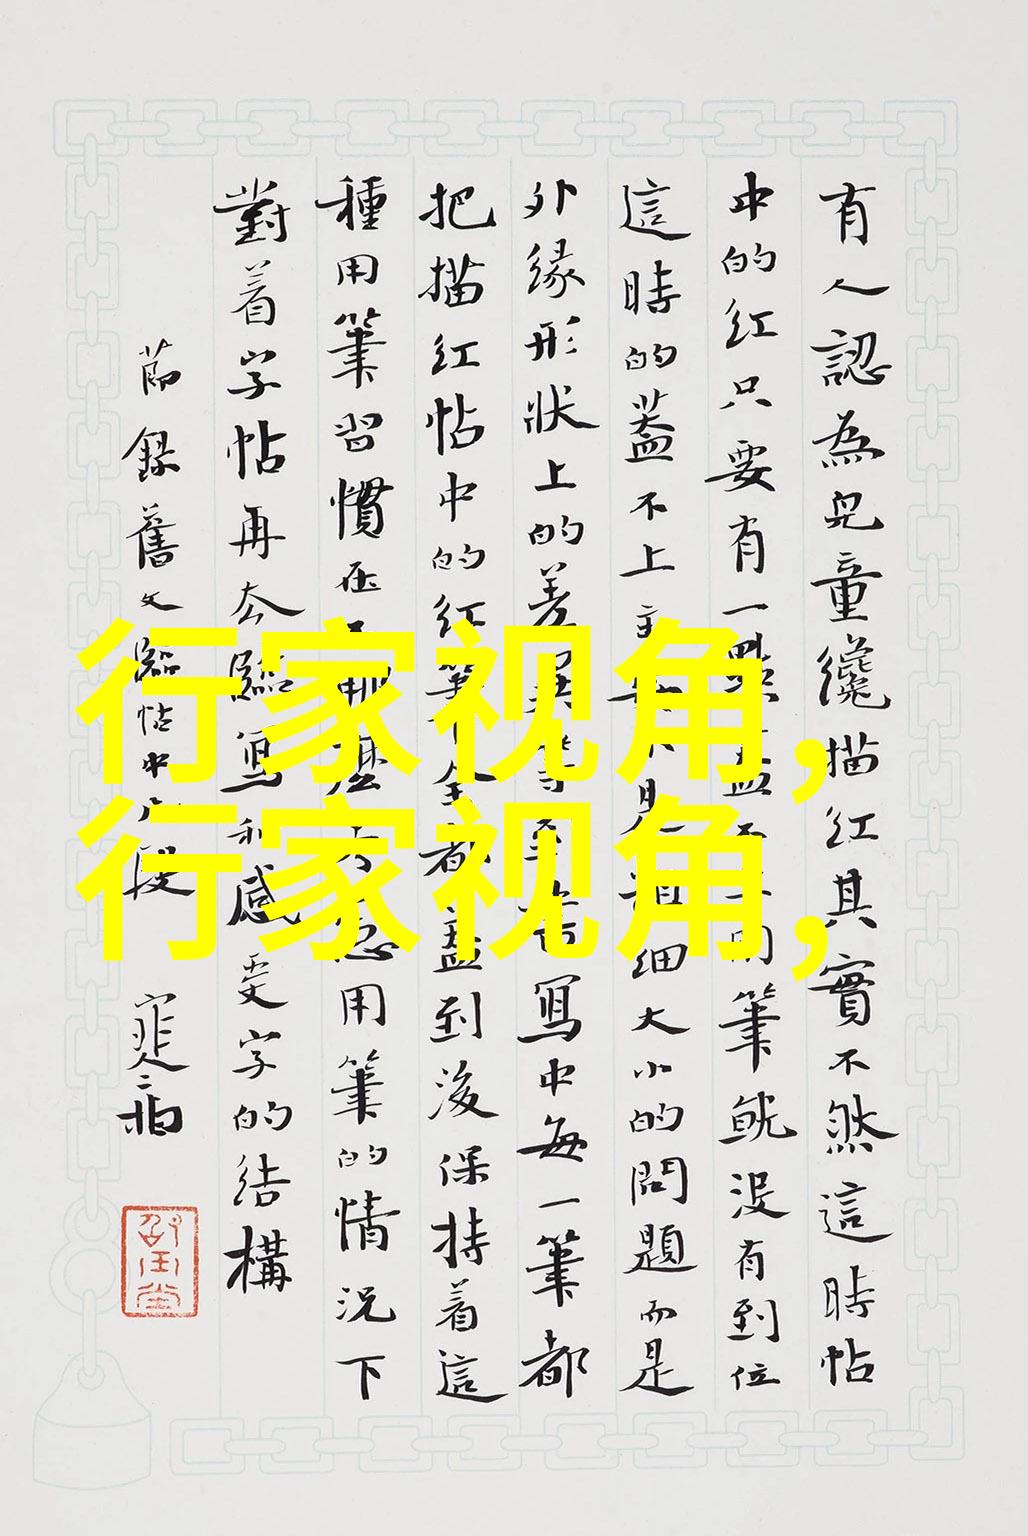 有人認為兒童纔描紅其實不然這時帖
中的紅只要有一點蓋用筆就没有到位
這時的蓋不上主細大小的問題而是
外緣形狀上的差異等書寫中每一筆都
把描紅帖中的紅筆全都蓋到後保持着這
種用筆習慣在麽用筆的情況下
對着字帖再去臨寫和感受字的結構
節錄舊文臨帖中段
行家视角,
行家视角,